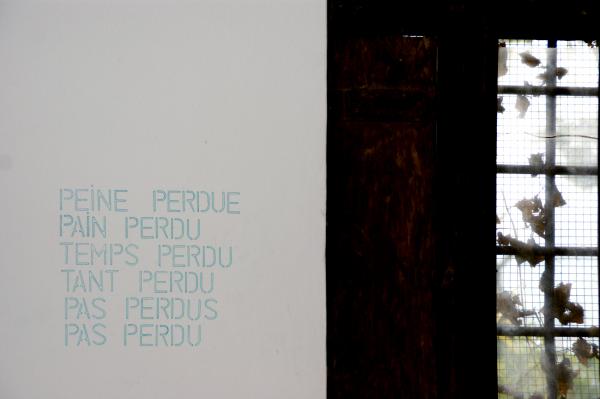 PEINE PERDUE
PAIN PERDU
TEMPS PERDU
TANT PERDU
PAS PERDUS
PAS PERDU